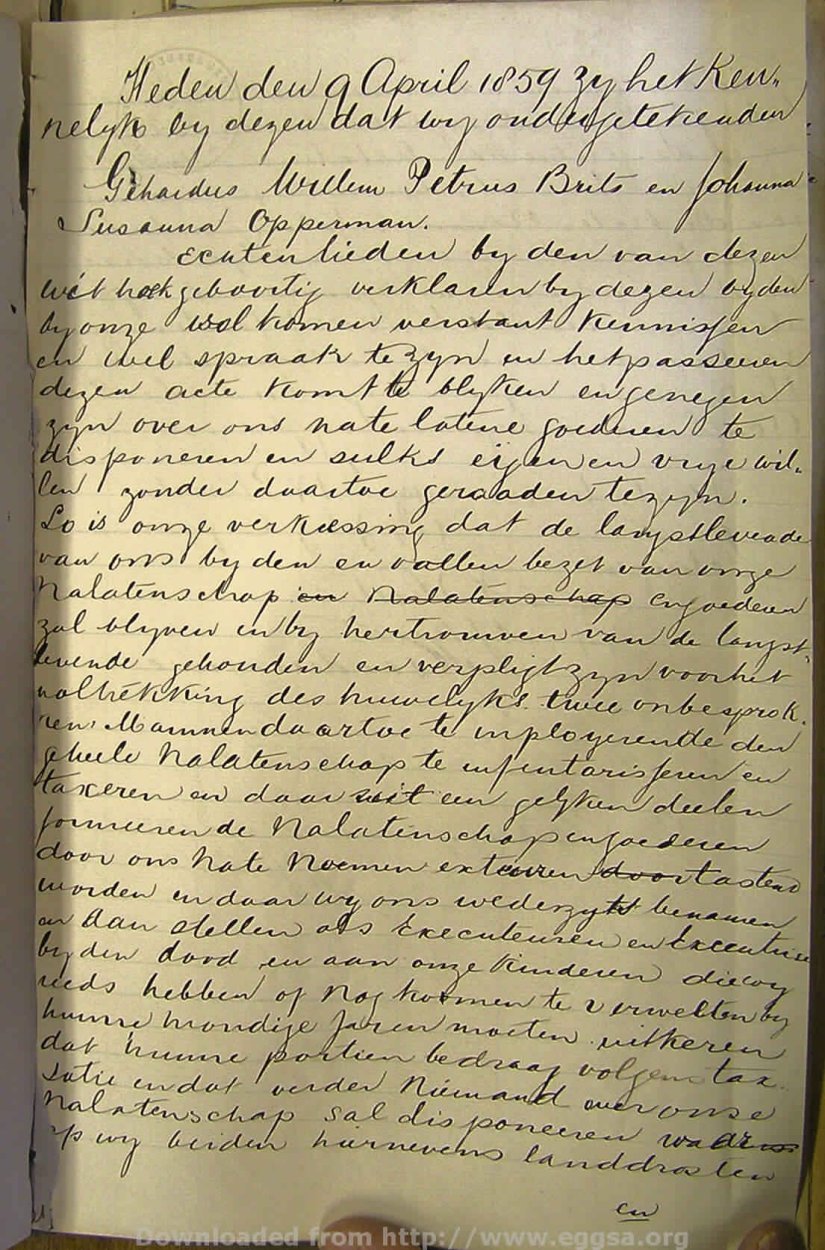 Heden den 9 April 1859 zy het Ken-
nelyk by dezen dat wy ondergetekenden
Gehardus Willem Petrus Brits en Johanna
Susanna Opperman.
Echtenlieden by den van dezen
geboortig verklaren by dezen byden
by onze wol komen verstant kennissen
en wel spraak te zyn en het passeeren
dezen acte komt te blyken en genegen
zyn over ons nate latene goederen te
disponeren en sulks eigen en vrye wil-
len zonder daartoe geraaden te zyn.
So is onze verkiessing dat de langstlevende
van ons byden en vollen bezet van onze
Nalatenschap en Nalatenschap en goederen
zal blyven en by hertrouwen van de langst-
levende gehouden en verpligt zyn voor het
voltrekking des huwelyks twee onbesprok-
ren Mannen daartoe te inployerende den
geheele Nalatenschap te infentarisseren en
taxeren en daar uit een gelyken deelen
formeeren de Nalatenschap en goederen
door ons Nate Noemen door tastend
worden en daar wy ons wederzyts benamen
en dan stellen als Executeuren en Executrice
by den dood en aan onze Kinderen die wy
reeds hebben of nog komen te verwekten by
hunne mondige Jaren moeten uitkeren
dat hunne portien bedraag volgens tax-
satie en dat verder Niemand over onse
Nalatenschap sal disponeeren
op wy beiden hiernevens landdrosten
en
Downloaded from http://www.eggsa.org